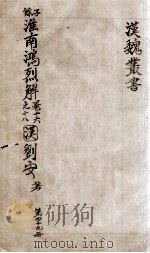 漢魏叢書
子餘
淮南鴻烈解
卷十六
之十八
漢劉安
著
第四十九册